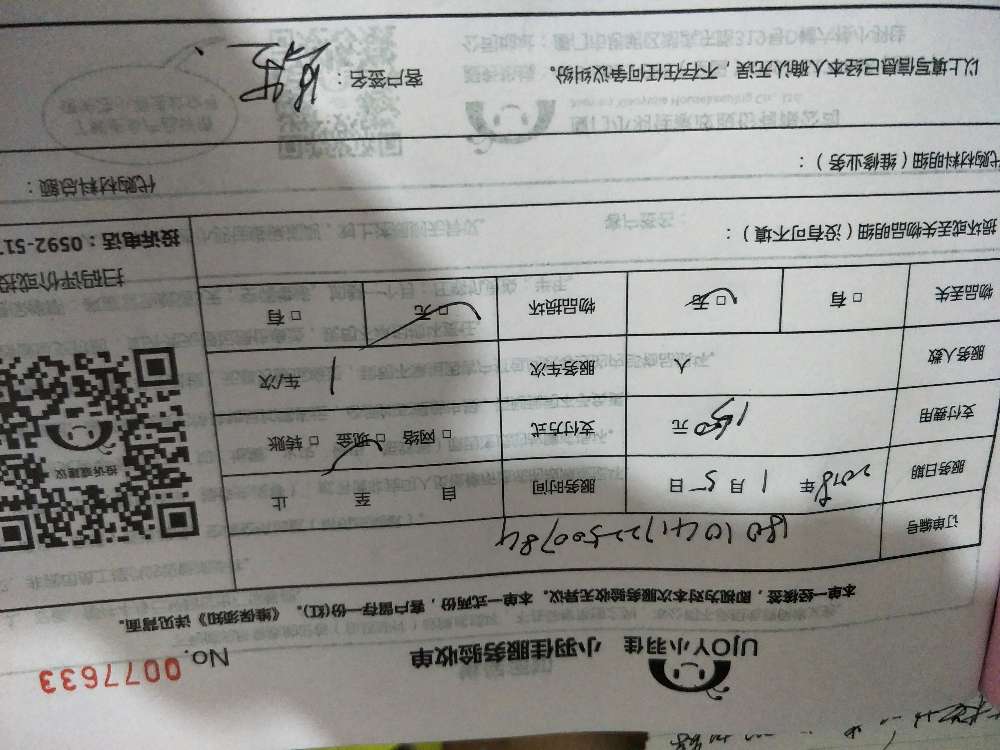 UJOY小羽佳 小羽佳服务验收单 No. 0077633
本单一经接签，即视为对本次服务验收无异议。本单一式两份，客户留存一份(红)。《维保须知》详见背面。
订单编号 1801041722500784
服务日期 2018年 1月 5日 服务时间 自 至 止
支付费用 150元 支付方式 □网络 □现金 □转账
服务人数 人 服务车次 1 车/次
物品丢失 □有 □无 物品损坏 □无 □有
投诉或建议
扫码评价或投
损坏或丢失物品明细（没有可不填）：
投诉电话：0592-51
代购材料明细（维修业务）：
代购材料总额：
以上填写信息已经本人确认无误，不存在任何争议纠纷。 客户签名：